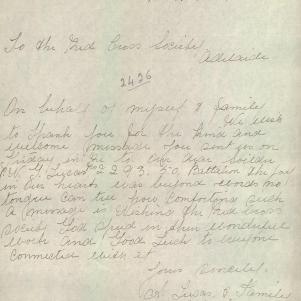 To the Red Cross Society
Adelaide
2426
On behalf of myself & Family
We wish
to thank you for the kind and
welcome message you sent us on
Friday in re to our dear Soldier
W. J. Lucas No 2293. 50 Battalion the joy
in our hearts was beyond words no
tongue can tell how comforting such
a message is Wishing the Red Cross
Society God Speed in their wonderful
Work And Good Luck to everyone
Connected With it
Yours Sincerely.
Lucas & Family